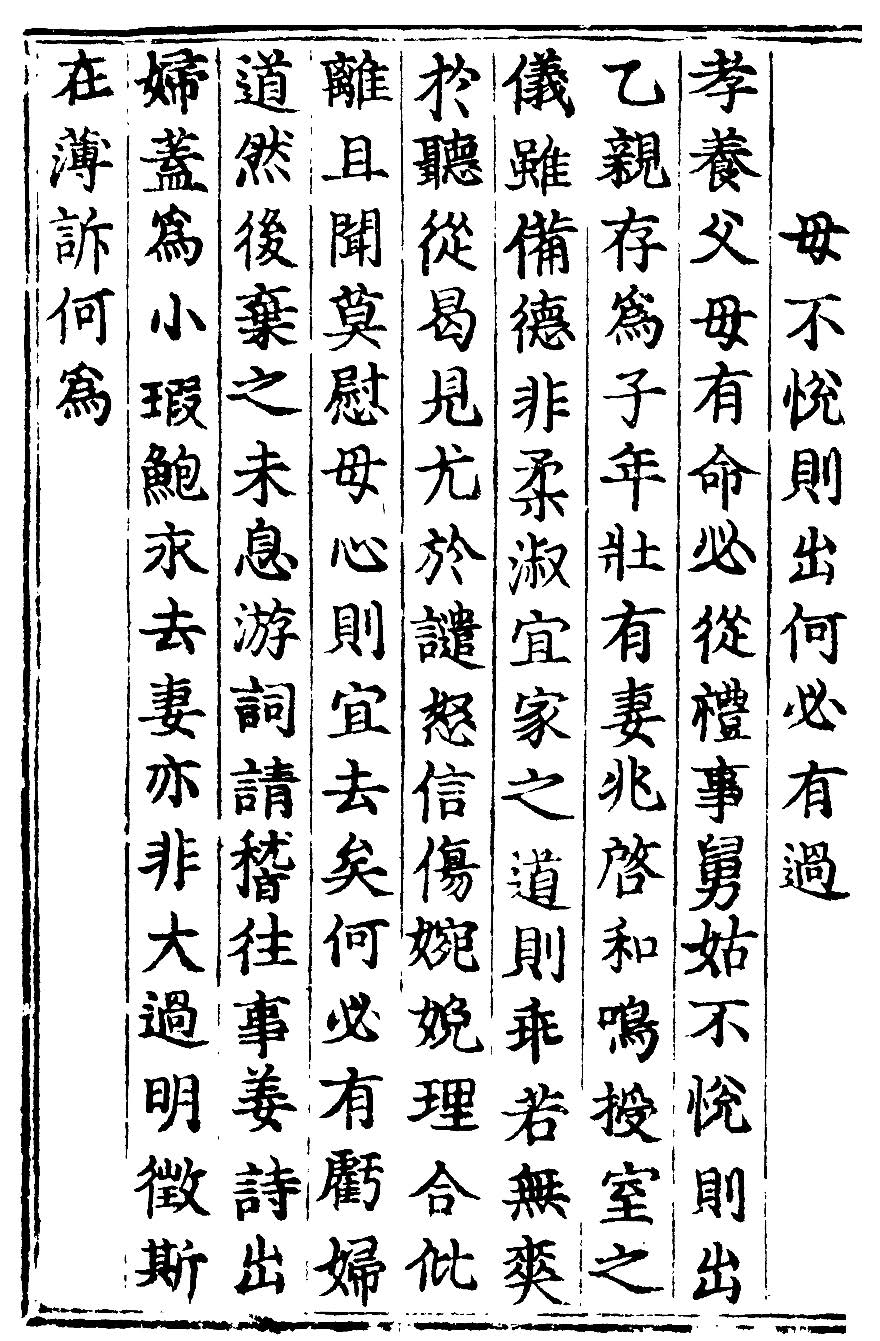 母不悅則出何必有過
孝養父母有命必從禮事舅姑不悅則出
乙親存爲子年壯有妻兆啓和鳴授室之
儀雖備德非柔淑宜家之道則乖若無爽
於聽從曷見尤於譴怒信傷婉娩理合仳
離且聞莫慰母心則宜去矣何必有虧婦
道然後棄之未息游詞請稽往事姜詩出
婦蓋爲小瑕鮑永去妻亦非大過明徵斯
在薄訴何爲